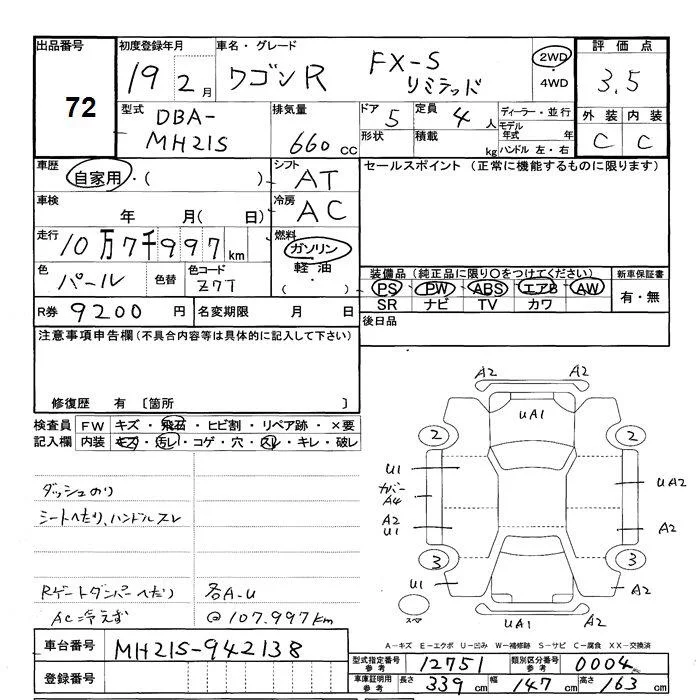 出品番号
72
初度登録年月
19 2月
車名・グレード
ワゴンR FX-S リミテッド
2WD
・
4WD
評価点
3.5
型式
DBA-
MH21S
排気量
660cc
ドア 5
形状
定員 4人
積載 kg
ディーラー・並行
モデル年式 年
ハンドル 左・右
外装 内装
C C
車歴
自家用・( )
シフト AT
セールスポイント (正常に機能するものに限ります)
車検
年 月( 日)
冷房 AC
走行
10万7千997km
燃料
ガソリン
軽油
・( )
色
パール
色替
色コード
Z7T
装備品(純正品に限り○をつけてください)
PS PW ABS エアB AW
SR ナビ TV カワ
新車保証書
有・無
R券 9200円
名変期限 月 日
後日品
注意事項申告欄(不具合内容等は具体的に記入して下さい)
修復歴 有 〔箇所 〕
検査員記入欄
FW キズ・飛石・ヒビ割・リペア跡・×要
内装 キズ・汚レ・コゲ・穴・スレ・キレ・破レ
ダッシュのり
シートヘたり、ハンドルスレ
Rゲートダンパーへたり
各A-U
AC冷えず
@107.997km
A2
A2
UA1
2
2
U1
UA2
カバー
A4
A2
U1
A2
3
3
U1
A2
スペア
UA1
A2
A-キズ E-エクボ U-凹み W-補修跡 S-サビ C-腐食 XX-交換済
車台番号 MH21S-942138
登録番号
型式指定番号参考 12751
類別区分番号参考 0004
車庫証明用参考 長さ 339cm 幅 147cm 高さ 163cm